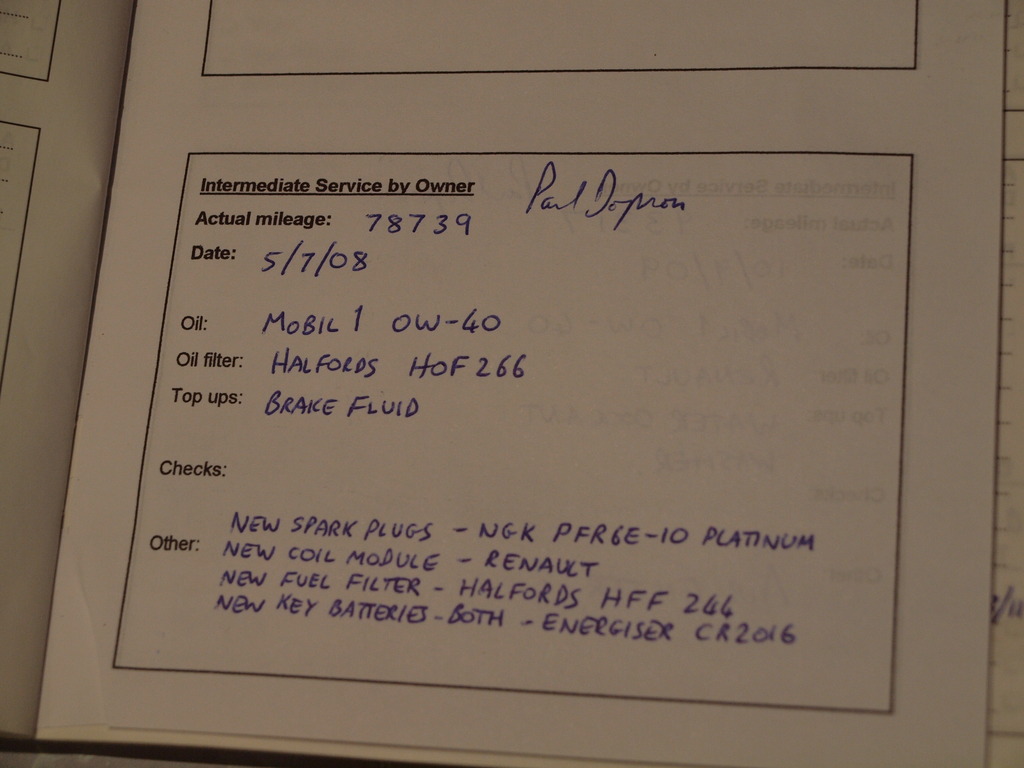 Intermediate Service by Owner
Actual mileage: 78739
Date: 5/7/08
Oil: MOBIL 1 0W-40
Oil filter: HALFORDS HOF 266
Top ups: BRAKE FLUID
Checks:
Other: NEW SPARK PLUGS - NGK PFR6E-10 PLATINUM
NEW COIL MODULE - RENAULT
NEW FUEL FILTER - HALFORDS HFF 244
NEW KEY BATTERIES - BOTH - ENERGISER CR2016